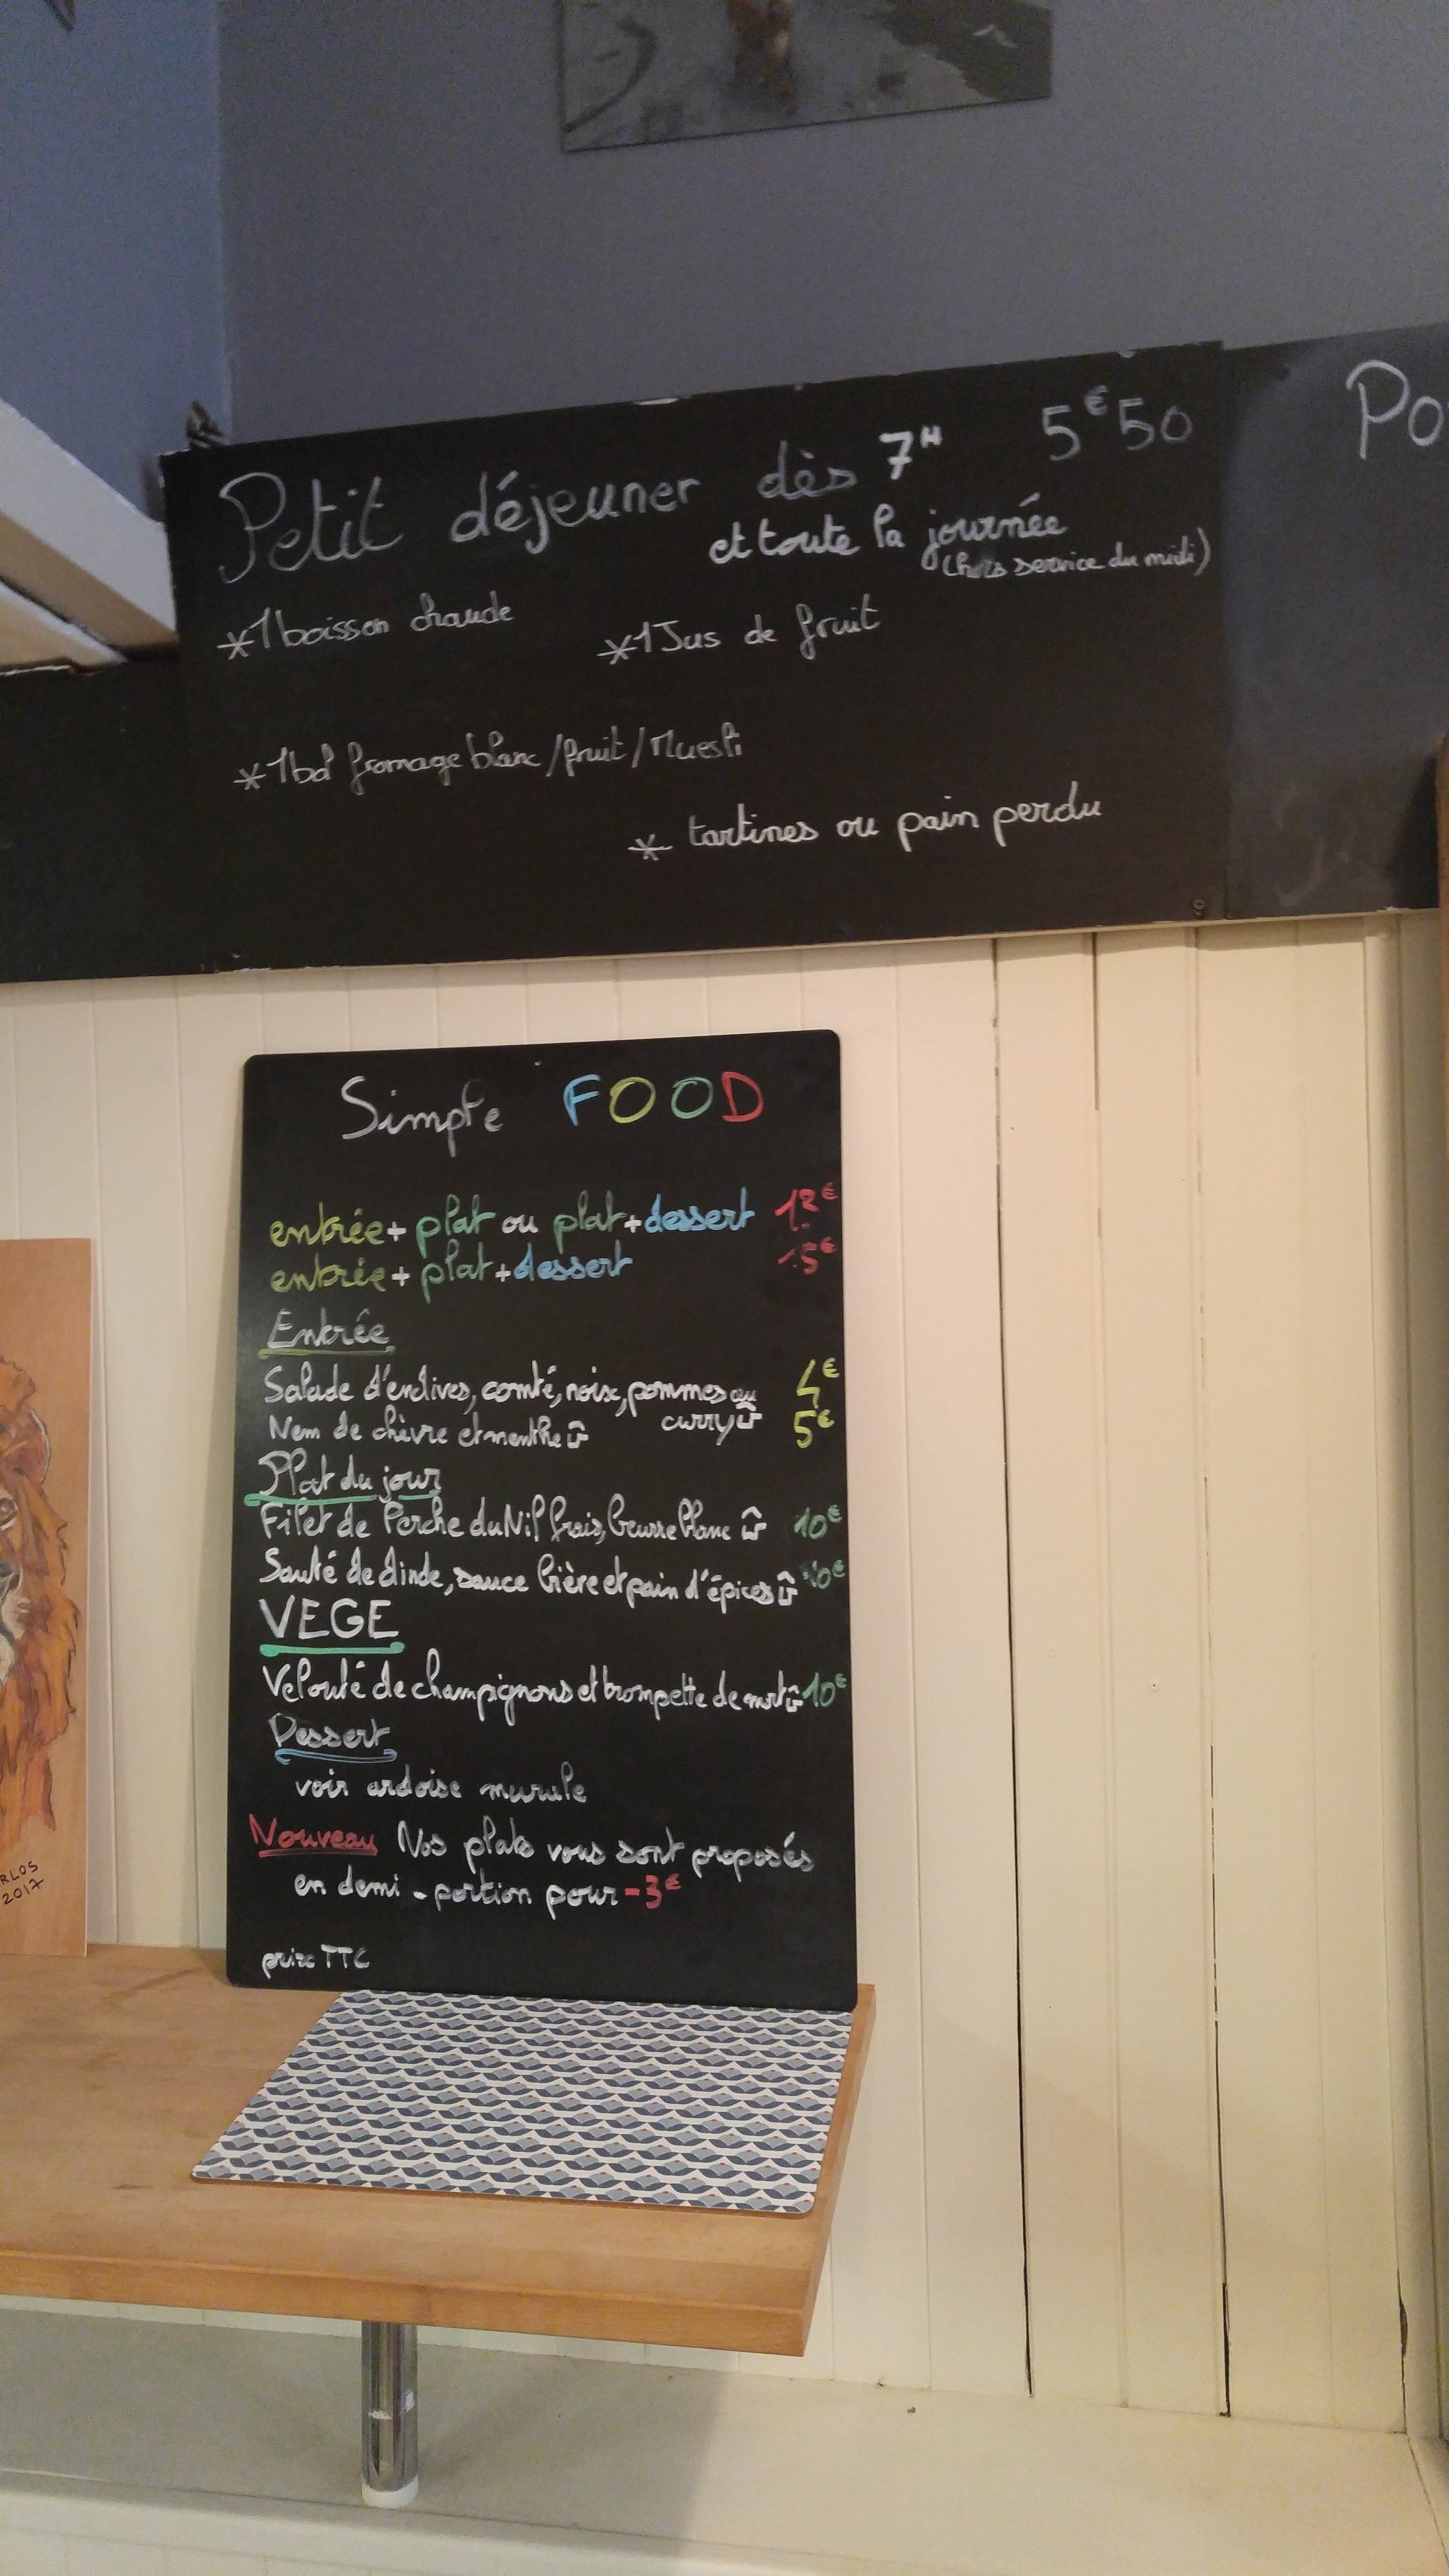 Petit déjeuner dès 7H 5€50
et toute la journée
(hors service du midi)
*1 boisson chaude
*1 Jus de fruit
*1 bol fromage blanc/fruit/Muesli
* tartines ou pain perdu
Po
Simple FOOD
entrée + plat ou plat + dessert 12€
entrée + plat + dessert 15€
Entrée
Salade d'endives, comté, noix, pommes au 4€
curry
Nem de chèvre et menthe 5€
Plat du jour
Filet de Perche du Nil frais, beurre blanc 10€
Sauté de dinde, sauce bière et pain d'épices 10€
VEGE
Velouté de champignons et trompette de mort 10€
Dessert
voir ardoise murale
Nouveau Nos plats vous sont proposés
en demi-portion pour -3€
prix TTC
RLOS
2017